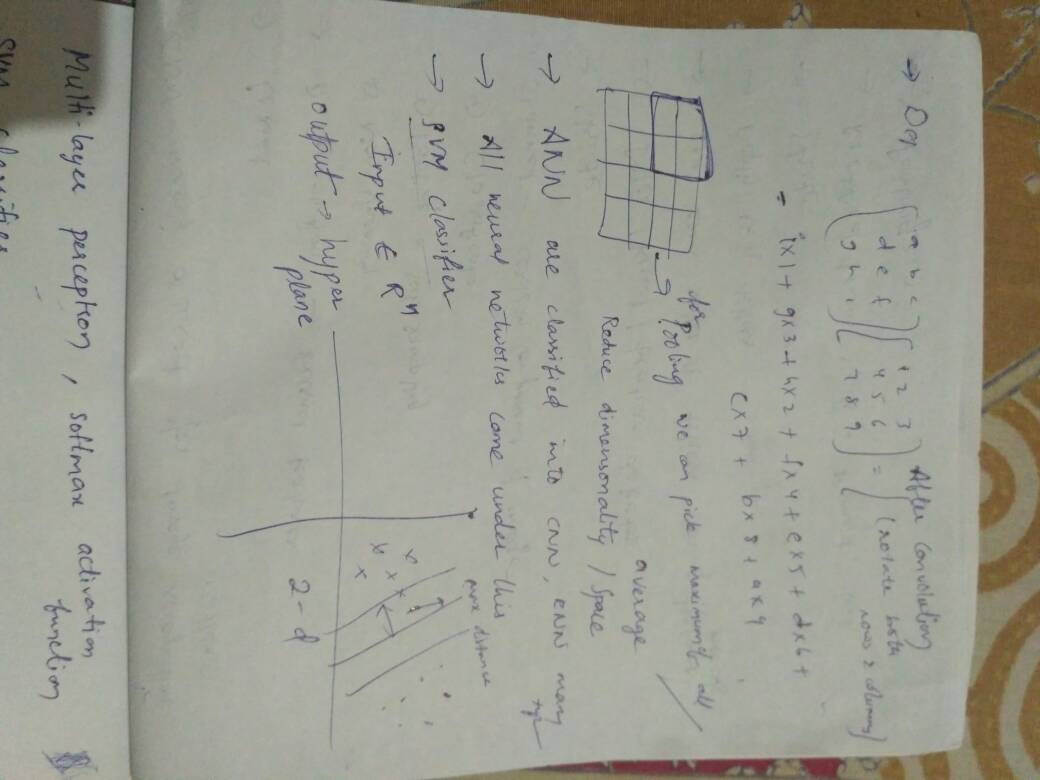 → Def
( a b c
d e f
g h i ) ( 1 2 3
4 5 6
7 8 9 ) =
After convolution
(rotate both
rows & columns)
= i×1 + g×3 + h×2 + f×4 + e×5 + d×6 +
c×7 + b×8 + a×9
→ for Pooling we can pick maximum of all /
average
Reduce dimensonality / Space
→ ANN are classified into CNN, RNN many
→ All neural networks come under this
→ SVM classifier
Input ∈ Rⁿ
output → hyper
plane
max distance
2-d
Multi-layer perceptron, softmax activation
function
SVM classifier